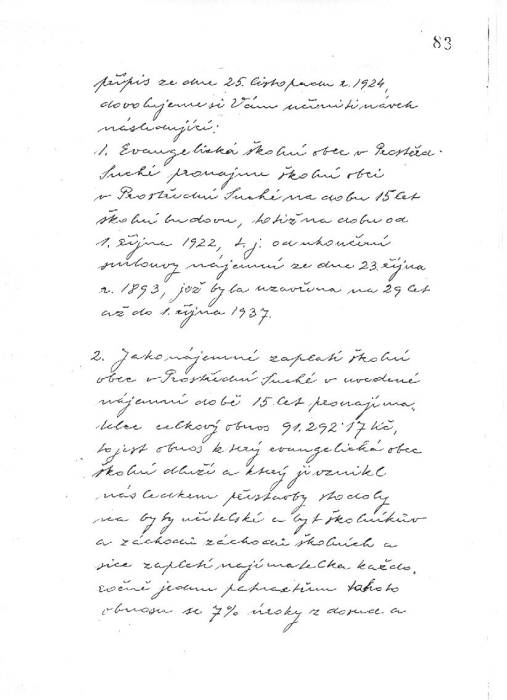 83
přípis ze dne 25. listopadu r. 1924,
dovolujeme si Vám učiniti návrh
následující:
1. Evangelická školní obec v Prostřed.
Suché pronajme školní obci
v Prostřední Suché na dobu 15 let
školní budovu, totiž na dobu od
1. října 1922, t. j. od ukončení
smlouvy nájemní ze dne 23. října
r. 1893, jež byla uzavřena na 29 let
až do 1. října 1937.
2. Jako nájemné zaplatí školní
obec v Prostřední Suché v uvedené
nájemní době 15 let pronajíma-
telce celkový obnos 91.292·17 Kč,
to jest obnos který evangelická obec
školní dluží a který jí vznikl
následkem přístavby stodoly
na byty učitelské a byt školníkův
a záchodů záchodů školních a
sice zaplatí najímatelka každo-
ročně jednu patnáctinu tohoto
obnosu se 7% úroky z dosud a